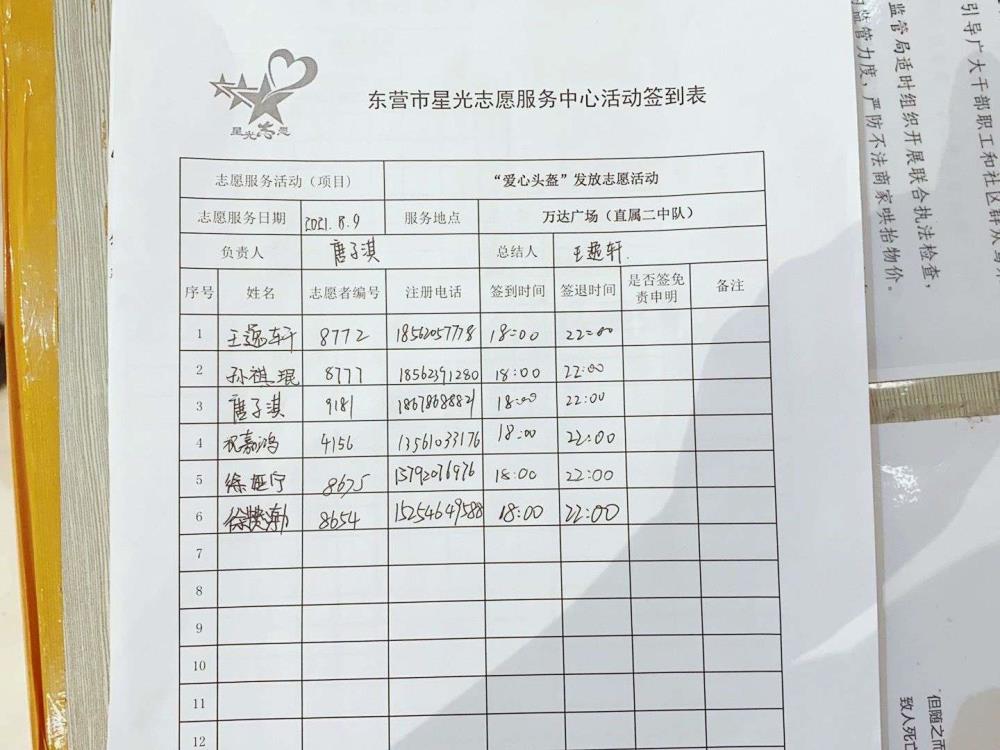 星光志愿
东营市星光志愿服务中心活动签到表
志愿服务活动（项目） “爱心头盔”发放志愿活动
志愿服务日期 2021.8.9 服务地点 万达广场（直属二中队）
负责人 唐子淇 总结人 王逸轩
序号 姓名 志愿者编号 注册电话 签到时间 签退时间 是否签免责申明 备注
1 王逸轩 8772 18562057778 18:00 22:00
2 孙祺琨 8777 18562391280 18:00 22:00
3 唐子淇 9181 18678688821 18:00 22:00
4 祝嘉鸿 4156 13561033176 18:00 22:00
5 徐 宁 8675 15792036936 18:00 22:00
6 徐 渤 8654 15254649588 18:00 22:00
7
8
9
10
11
12
引导广大干部职工和社区群众
监管局适时组织开展联合执法检查，
监管力度，严防不法商家哄抬物价。
但随之而
致人死